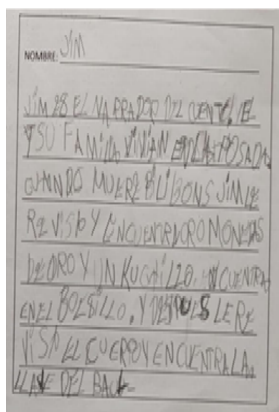 NOMBRE: JIM
JIM ES EL NARRADOR DEL CUENTO, EL
Y SU FAMILIA VIVIAN EN LA POSADA
CUANDO MUERE BILIBONS JIM LE
REVISO Y ENCUENTRA ORO MONEDAS
DE ORO Y UN KUCHILLO. ENCUENTRA
EN EL BOLSILLO. Y DESPUES LE RE
VISA EL CUERPO Y ENCUENTRA LA
LLAVE DEL BAUL